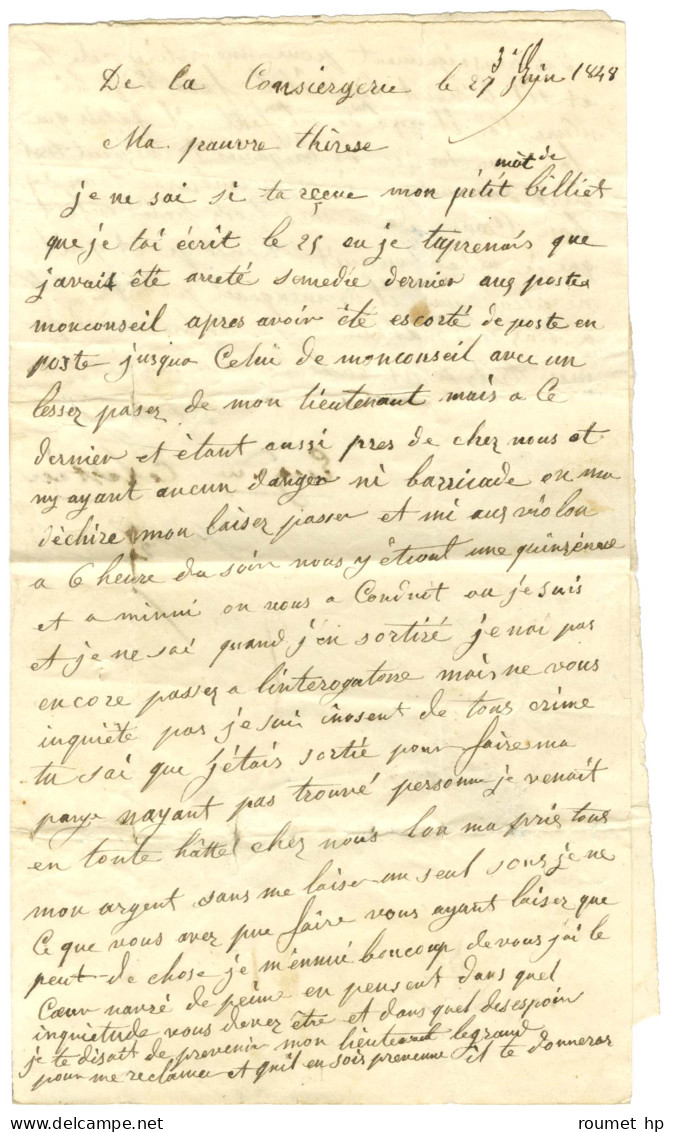 De la Consiergerie le 27 juin 1848
Ma pauvre thérese
mot de
je ne sai si ta reçue mon pétit billiet
que je tai écrit le 25 ou je taprenais que
javait été areté somedie dernier aux postes
monconseil apres avoir été escorté de poste en
poste jusqua Celui de monconseil avec un
lessez paser de mon lieutenant mais a Ce
dernier et étant aussi pres de chez nous et
ny ayant aucun danger ni barricade on ma
déchire mon laisez passer et mi aux violon
a 6 heure du soir nous y étiont une quinzénne
et a minui on nous a Conduit ou je suis
et je ne sai quand j'en sortiré je nai pas
encore passez a linterogatoire mais ne vous
inquiéte pas je suis inosent de tous crime
tu sai que j'étais sortie pour faire ma
paye nayant pas trouvé personne je venait
en toute hâtte chez nous lon ma pris tous
mon argent sans me laiser un seul sous je ne
Ce que vous avez pue faire vous ayant laisez que
peut de chose je m'ennui boucoup de vous j'ai le
Cœur navré de peine en pensent dans quel
inquietude vous devez être et dans quel desespoir
je te disait de prevenir mon lieutenant legrand
pour me reclamer et quil en sois prevenue il te donneras
roumet hp